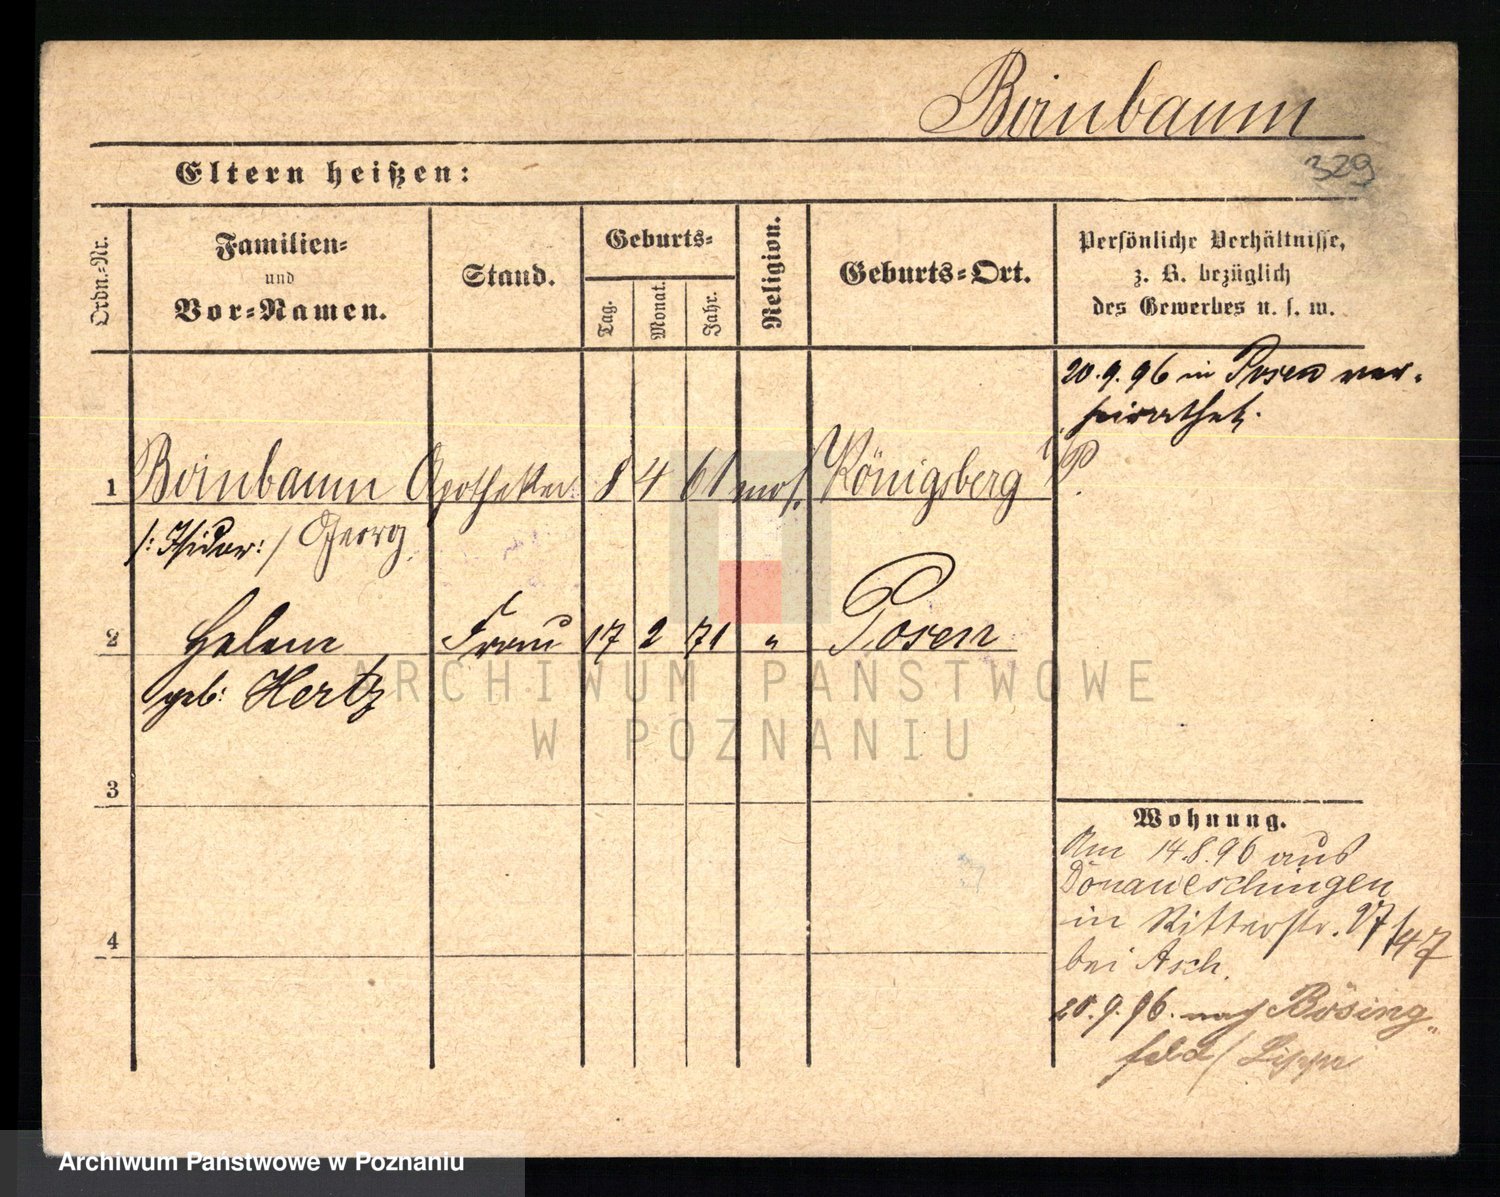 Birnbaum
329
Eltern heißen:
Ordn.-Nr.
Familien-
und
Vor-Namen.
Stand.
Geburts-
Tag.
Monat.
Jahr.
Religion.
Geburts-Ort.
Persönliche Verhältnisse,
z. B. bezüglich
des Gewerbes u. s. w.
20.9.96 in Posen ver-
heirathet.
1 Birnbaum Apotheker 8 4 61 mos. Königsberg i/P.
/: Isidor: / Georg
2 Helene Frau 17 2 71 " Posen
geb: Hertz
3
4
Wohnung.
Am 14.8.96 aus
Donaueschingen
in Ritterstr. 17/47
bei Asch.
20.9.96. nach Bösing-
feld / Lippe
ARCHIWUM PAŃSTWOWE
W POZNANIU
Archiwum Państwowe w Poznaniu